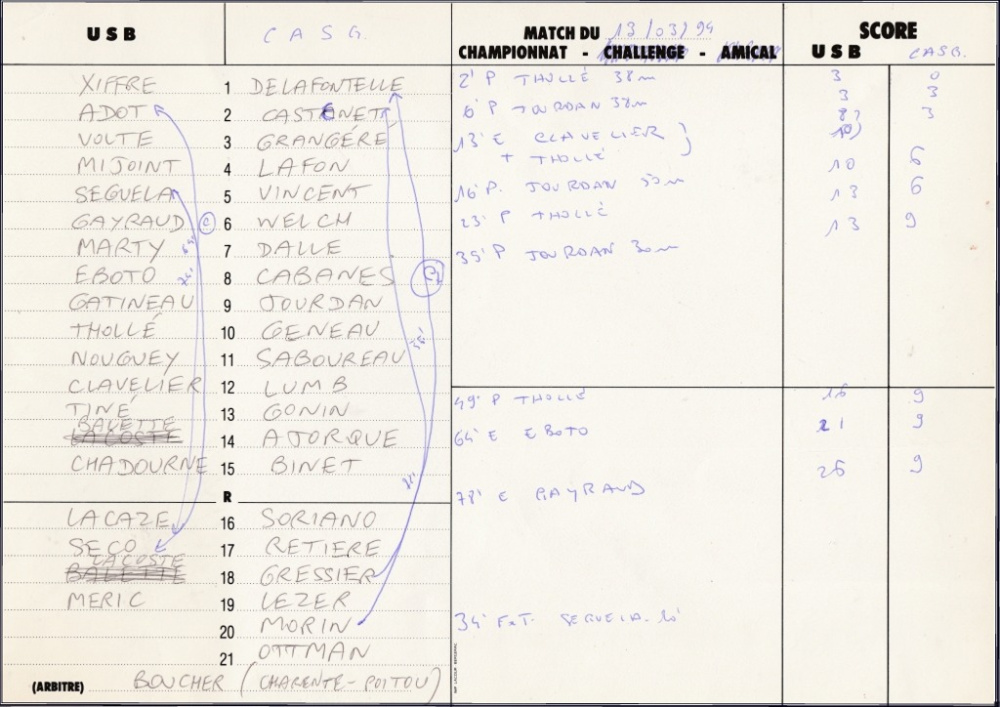 USB C A S G. MATCH DU 13/03/94 SCORE
CHAMPIONNAT - CHALLENGE - AMICAL USB CASG.
XIFFRE 1 DELAFONTELLE 2' P THOLLÉ 38m 3 0
ADOT 2 CASTANET 6' P JOURDAN 38m 3 3
VOLTE 3 GRANGÉRE 13' E CLAVELIER 8 3
MIJOINT 4 LAFON + THOLLÉ 10
10 6
SEGUELA 5 VINCENT 16' P. JOURDAN 13 6
GAYRAUD 6 WELCH 23' P THOLLÉ 13 9
MARTY 7 DALLE 35' P JOURDAN 30m
EBOTO 8 CABANES
GATINEAU 9 JOURDAN
THOLLÉ 10 GENEAU
NOUGUEY 11 SABOUREAU
CLAVELIER 12 LUMB 49' P THOLLÉ 16 9
TINÉ 13 GONIN
BALETTE
LACOSTE 14 AJORQUE 64' E EBOTO 21 9
CHADOURNE 15 BINET 78' E GAYRAUD 26 9
R
LACAZE 16 SORIANO
SECO 17 RETIERE
LACOSTE
BALETTE 18 GRESSIER
MERIC 19 LEZER
20 MORIN 34' SEGUELA 10'
21 OTTMAN
(ARBITRE) BOUCHER (CHARENTE-POITOU)